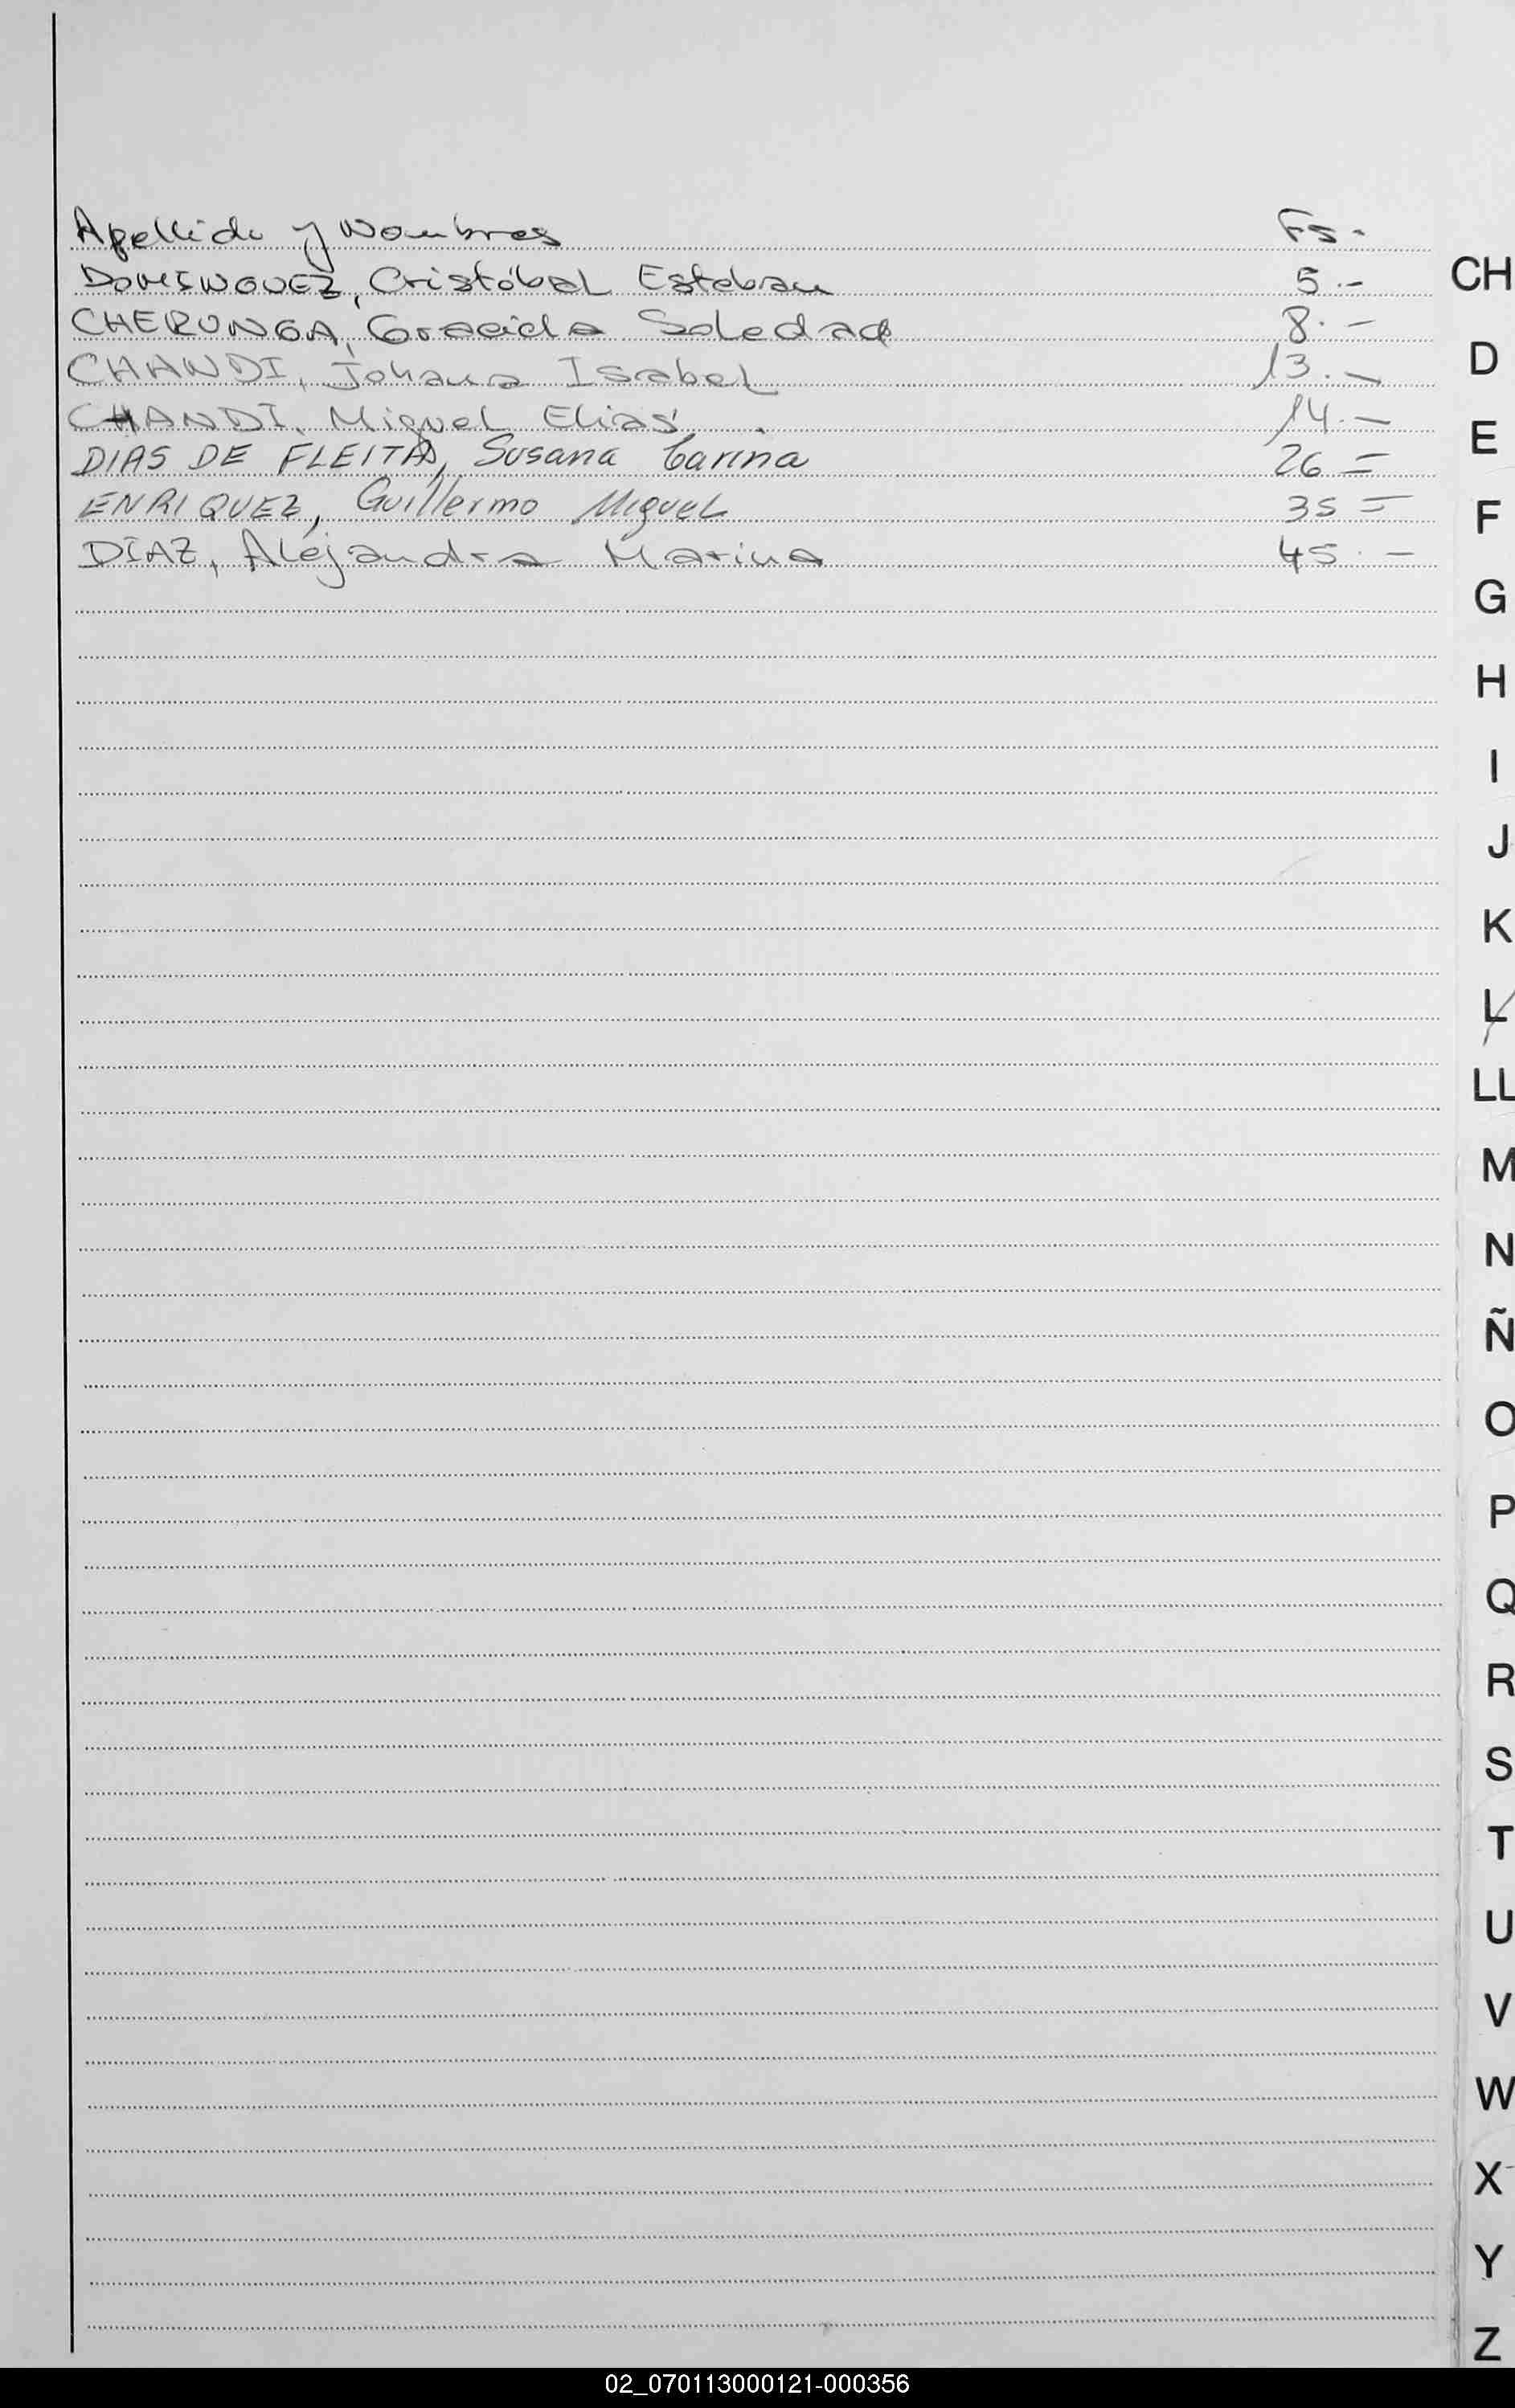 Apellido y Nombres Fs.
DOMINGUEZ, Cristóbal Esteban 5.-
CHERUNGA, Graciela Soledad 8.-
CHANDI, Johana Isabel 13.-
CHANDI, Miguel Elias 14.-
DIAS DE FLEITA, Susana Carina 26=
ENRIQUEZ, Guillermo Miguel 35=
DÍAZ, Alejandra Marina 45.-
CH
D
E
F
G
H
I
J
K
L
LL
M
N
Ñ
O
P
Q
R
S
T
U
V
W
X
Y
Z
02_070113000121-000356